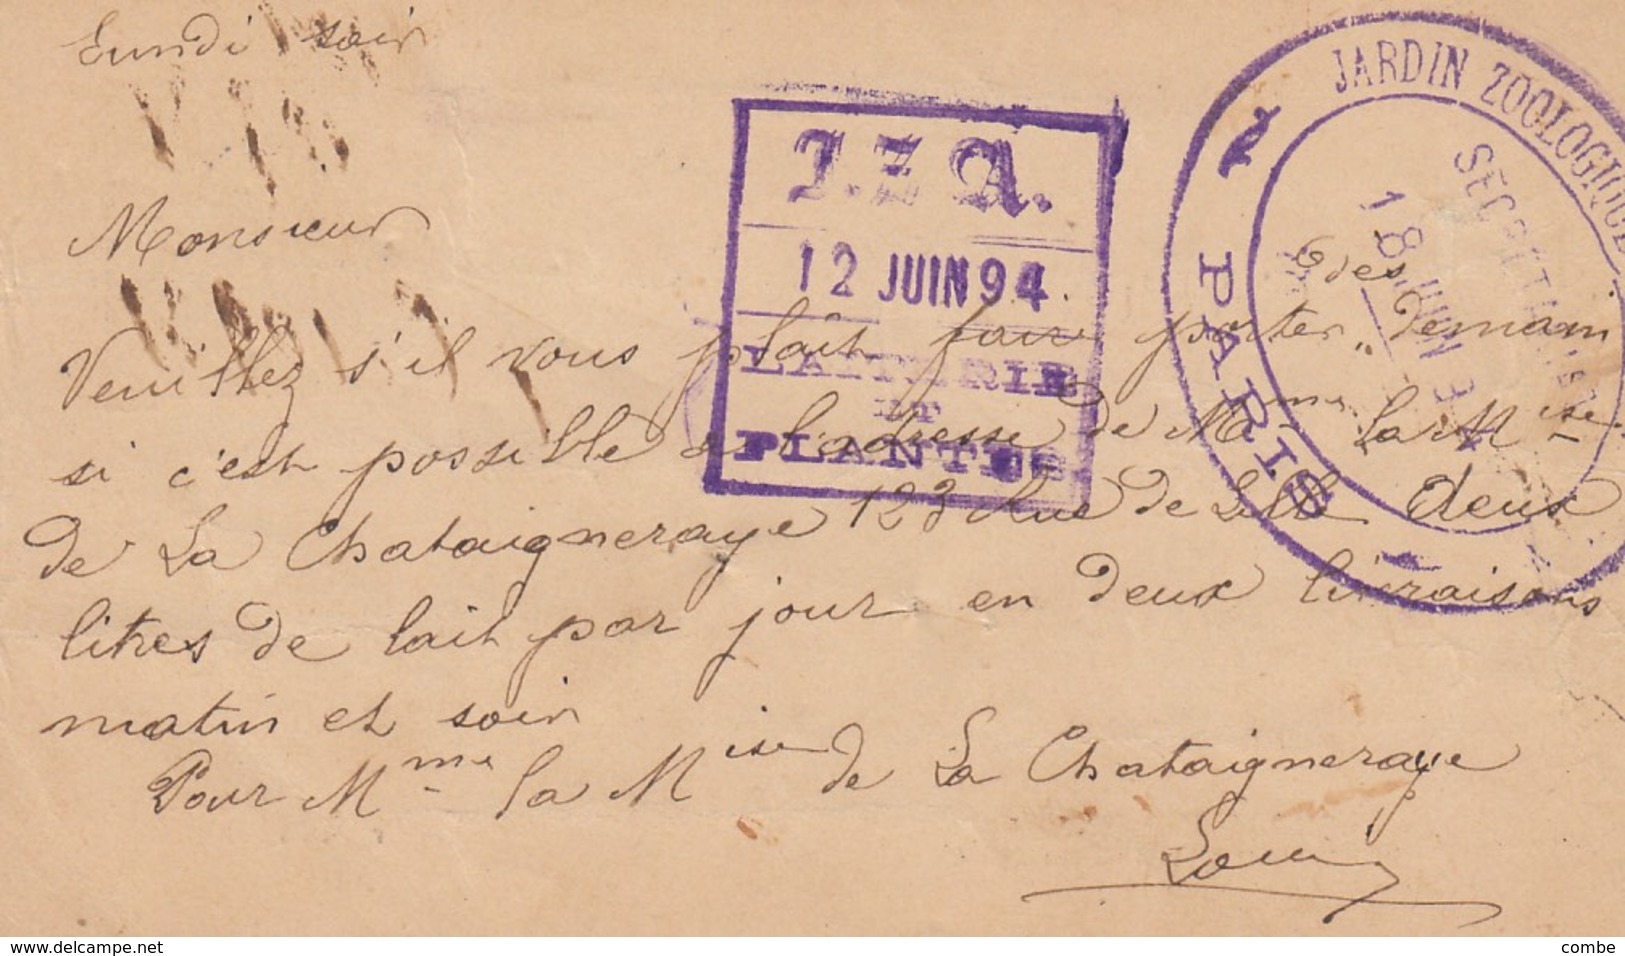 Lundi soir
Monsieur
Veuillez s'il vous plaît faire porter dès demain
si c'est possible à l'adresse de Mme La Mise
de La Chataigneraye 123 Rue de Lille deux
litres de lait par jour en deux livraisons
matin et soir
Pour Mme la Mise de La Chataigneraye
J.Z.A.
12 JUIN 94
LAITERIE
ET
PLANTES
JARDIN ZOOLOGIQUE
SECRETARIAT
PARIS
www.delcampe.net
combe